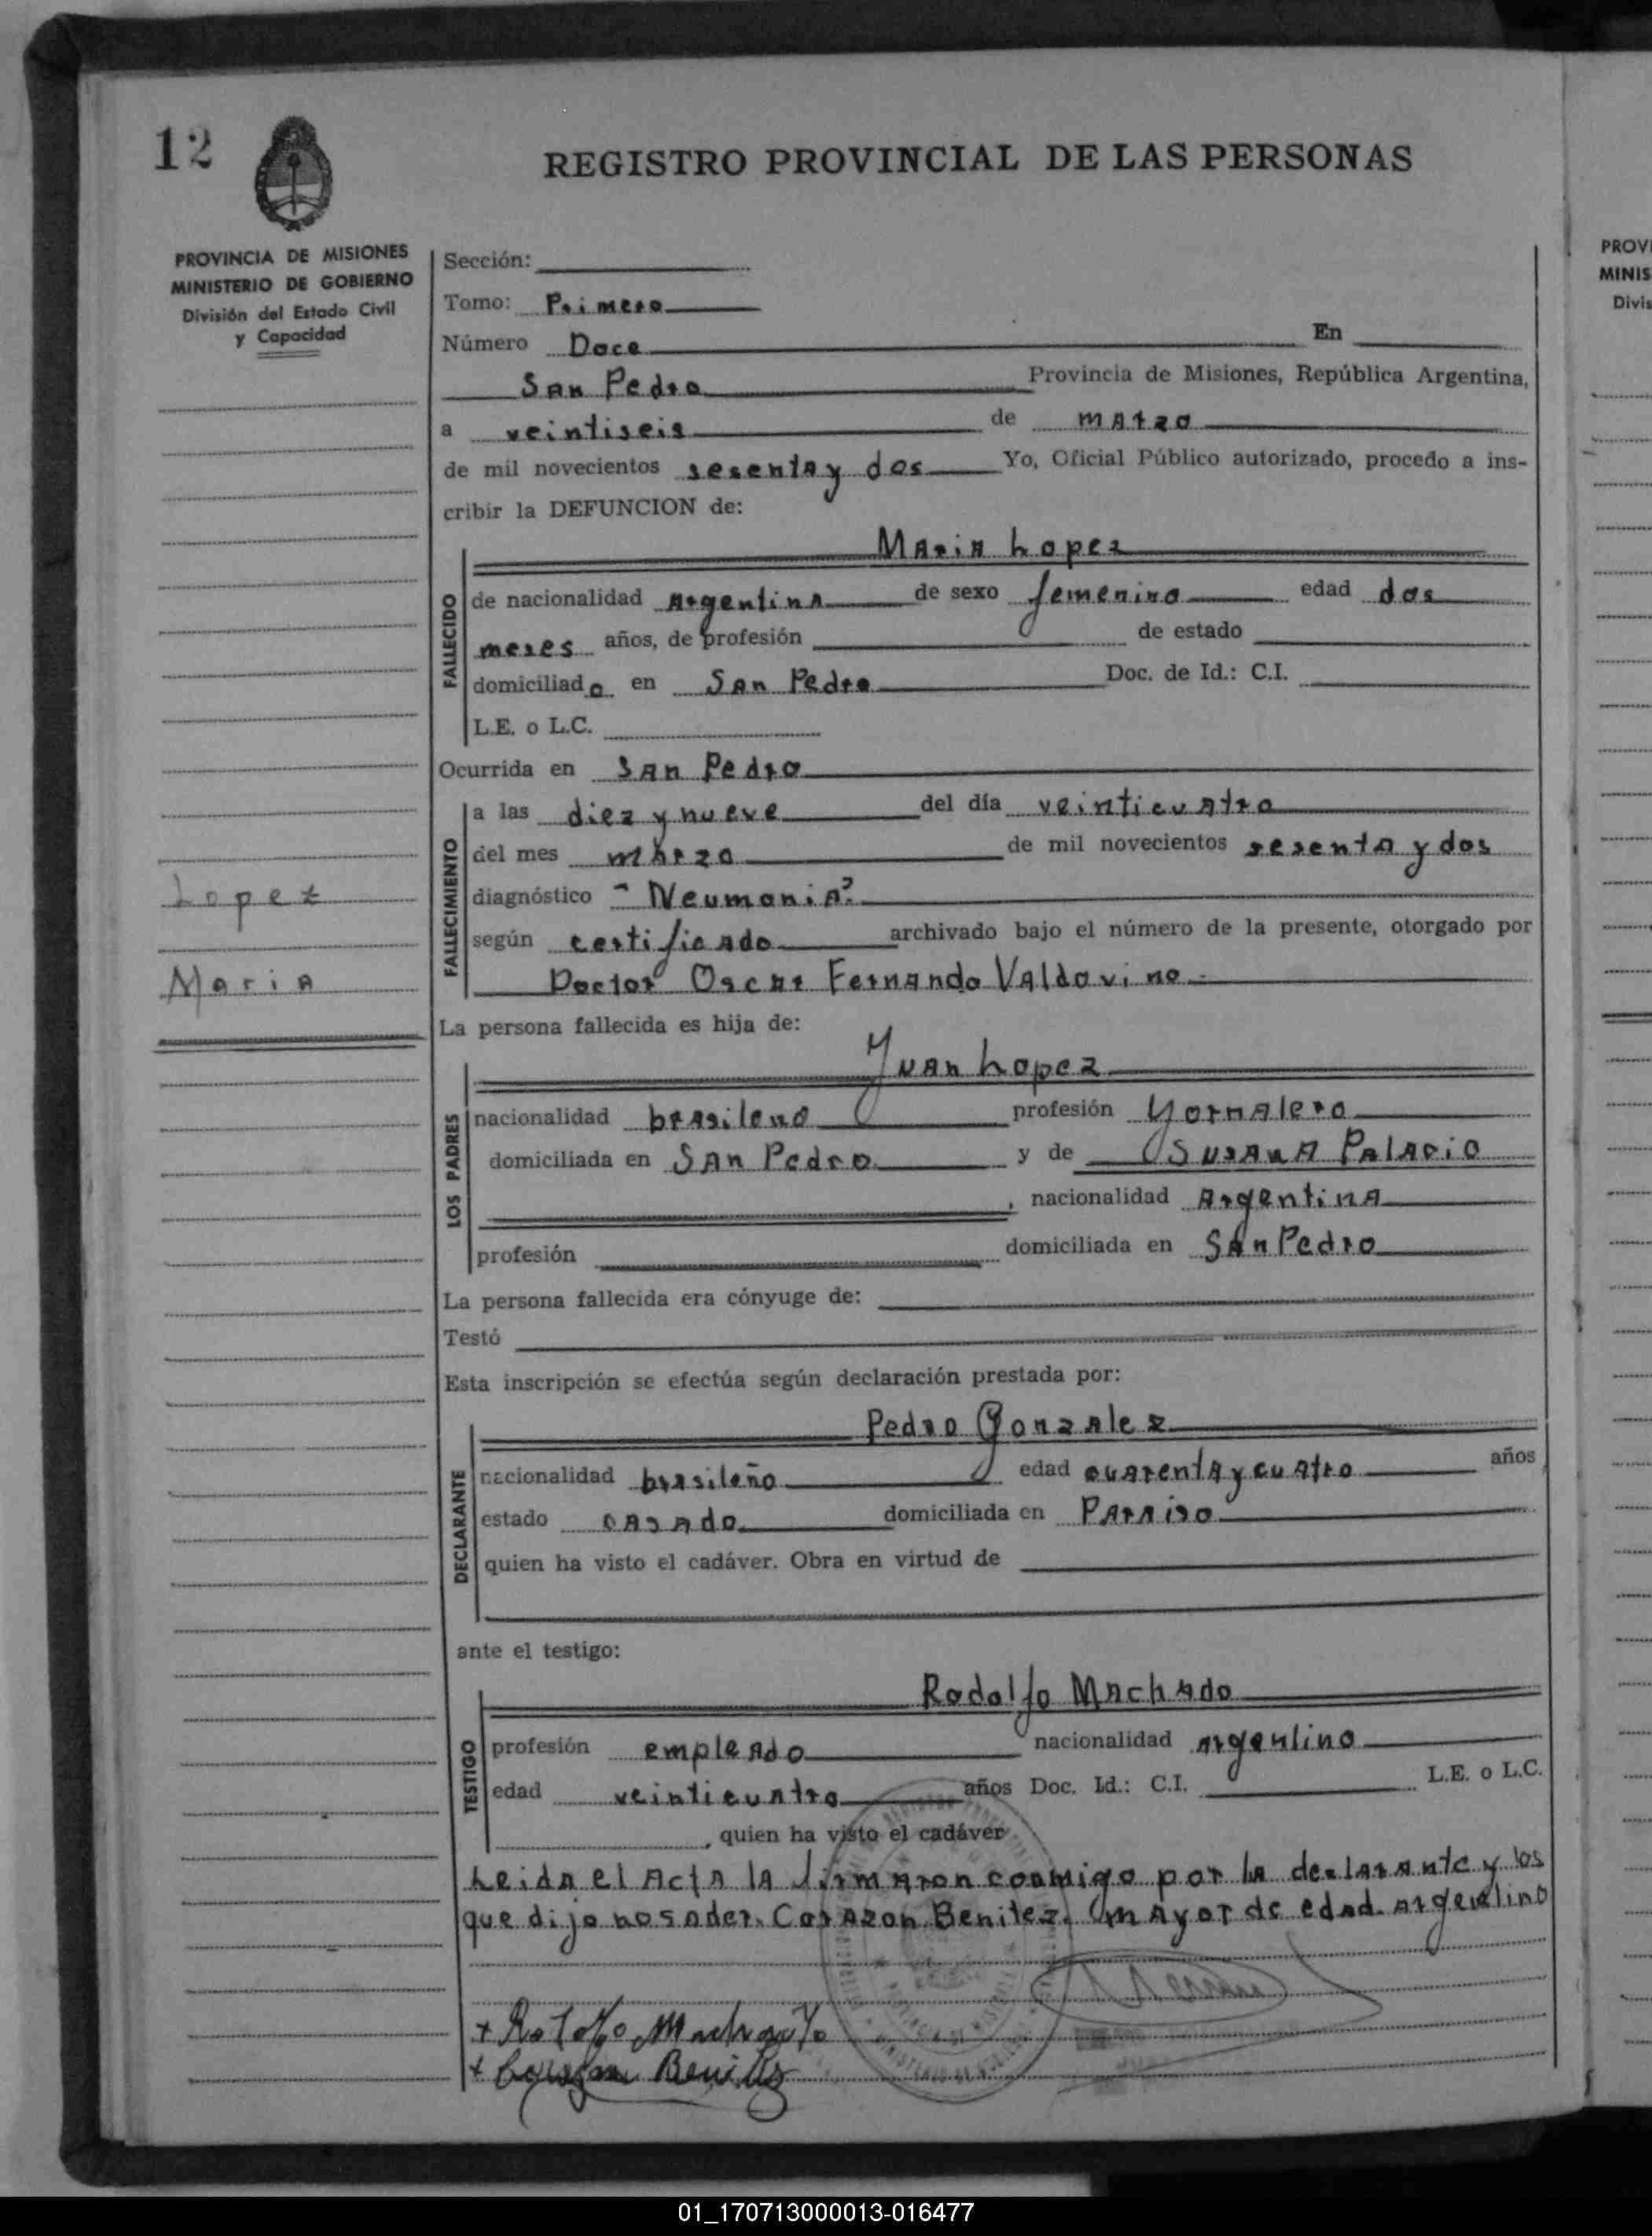 12
REGISTRO PROVINCIAL DE LAS PERSONAS
PROVINCIA DE MISIONES
MINISTERIO DE GOBIERNO
División del Estado Civil
y Capacidad
Sección:
Tomo: Primero
Número Doce En
San Pedro Provincia de Misiones, República Argentina,
a veintiseis de marzo
de mil novecientos sesenta y dos Yo, Oficial Público autorizado, procedo a ins-
cribir la DEFUNCION de:
Maria Lopez
FALLECIDO
de nacionalidad Argentina de sexo femenino edad dos
meses años, de profesión de estado
domiciliado en San Pedro Doc. de Id.: C.I.
L.E. o L.C.
Ocurrida en San Pedro
FALLECIMIENTO
a las diez y nueve del día veinticuatro
del mes marzo de mil novecientos sesenta y dos
diagnóstico "Neumonia"
según certificado archivado bajo el número de la presente, otorgado por
Doctor Oscar Fernando Valdovino
Lopez
Maria
La persona fallecida es hija de:
Juan Lopez
LOS PADRES
nacionalidad brasileno profesión Yornalero
domiciliada en San Pedro y de Susana Palacio
, nacionalidad Argentina
profesión domiciliada en San Pedro
La persona fallecida era cónyuge de:
Testó
Esta inscripción se efectúa según declaración prestada por:
Pedro Gonzalez
DECLARANTE
nacionalidad brasileño edad cuarenta y cuatro años
estado casado domiciliada en Paraiso
quien ha visto el cadáver. Obra en virtud de
ante el testigo:
Rodolfo Machado
TESTIGO
profesión empleado nacionalidad argentino
edad veinticuatro años Doc. Id.: C.I. L.E. o L.C.
, quien ha visto el cadáver
Leida el Acta la firmaron conmigo por la declarante y los
que dijo no sader. Corazon Benitez. mayor de edad. argentino
+ Rodolfo Machado
+ Corazon Benitez
PROVI
MINIS
Divis
01_170713000013-016477